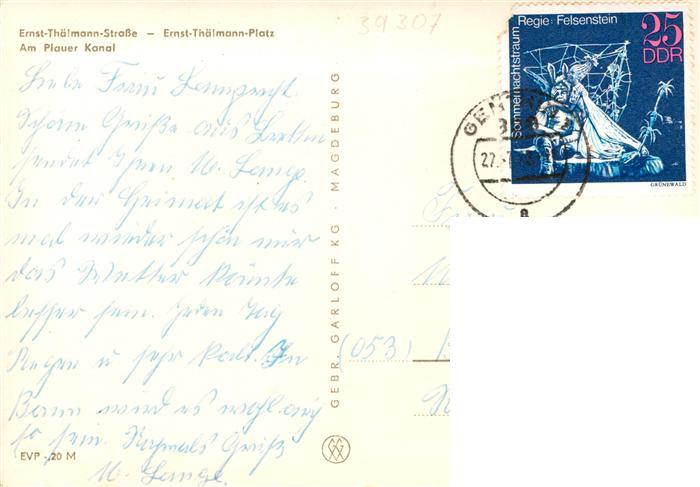 39307
Ernst-Thälmann-Straße – Ernst-Thälmann-Platz
Am Plauer Kanal
Liebe Frau Lamprecht.
Schöne Grüße aus
sendet Ihnen M. Lange.
In der Heimat ist es
mal wieder schön nur
das Wetter könnte
besser sein. Jeden Tag
Regen u sehr kalt. In
Bonn wird es wohl auch
so sein. Nochmals Gruß
M. Lange.
EVP -.20 M
GEBR. GARLOFF KG · MAGDEBURG
Sommernachtstraum
Regie: Felsenstein
25
DDR
GRÜNEWALD
27.
a
(053)